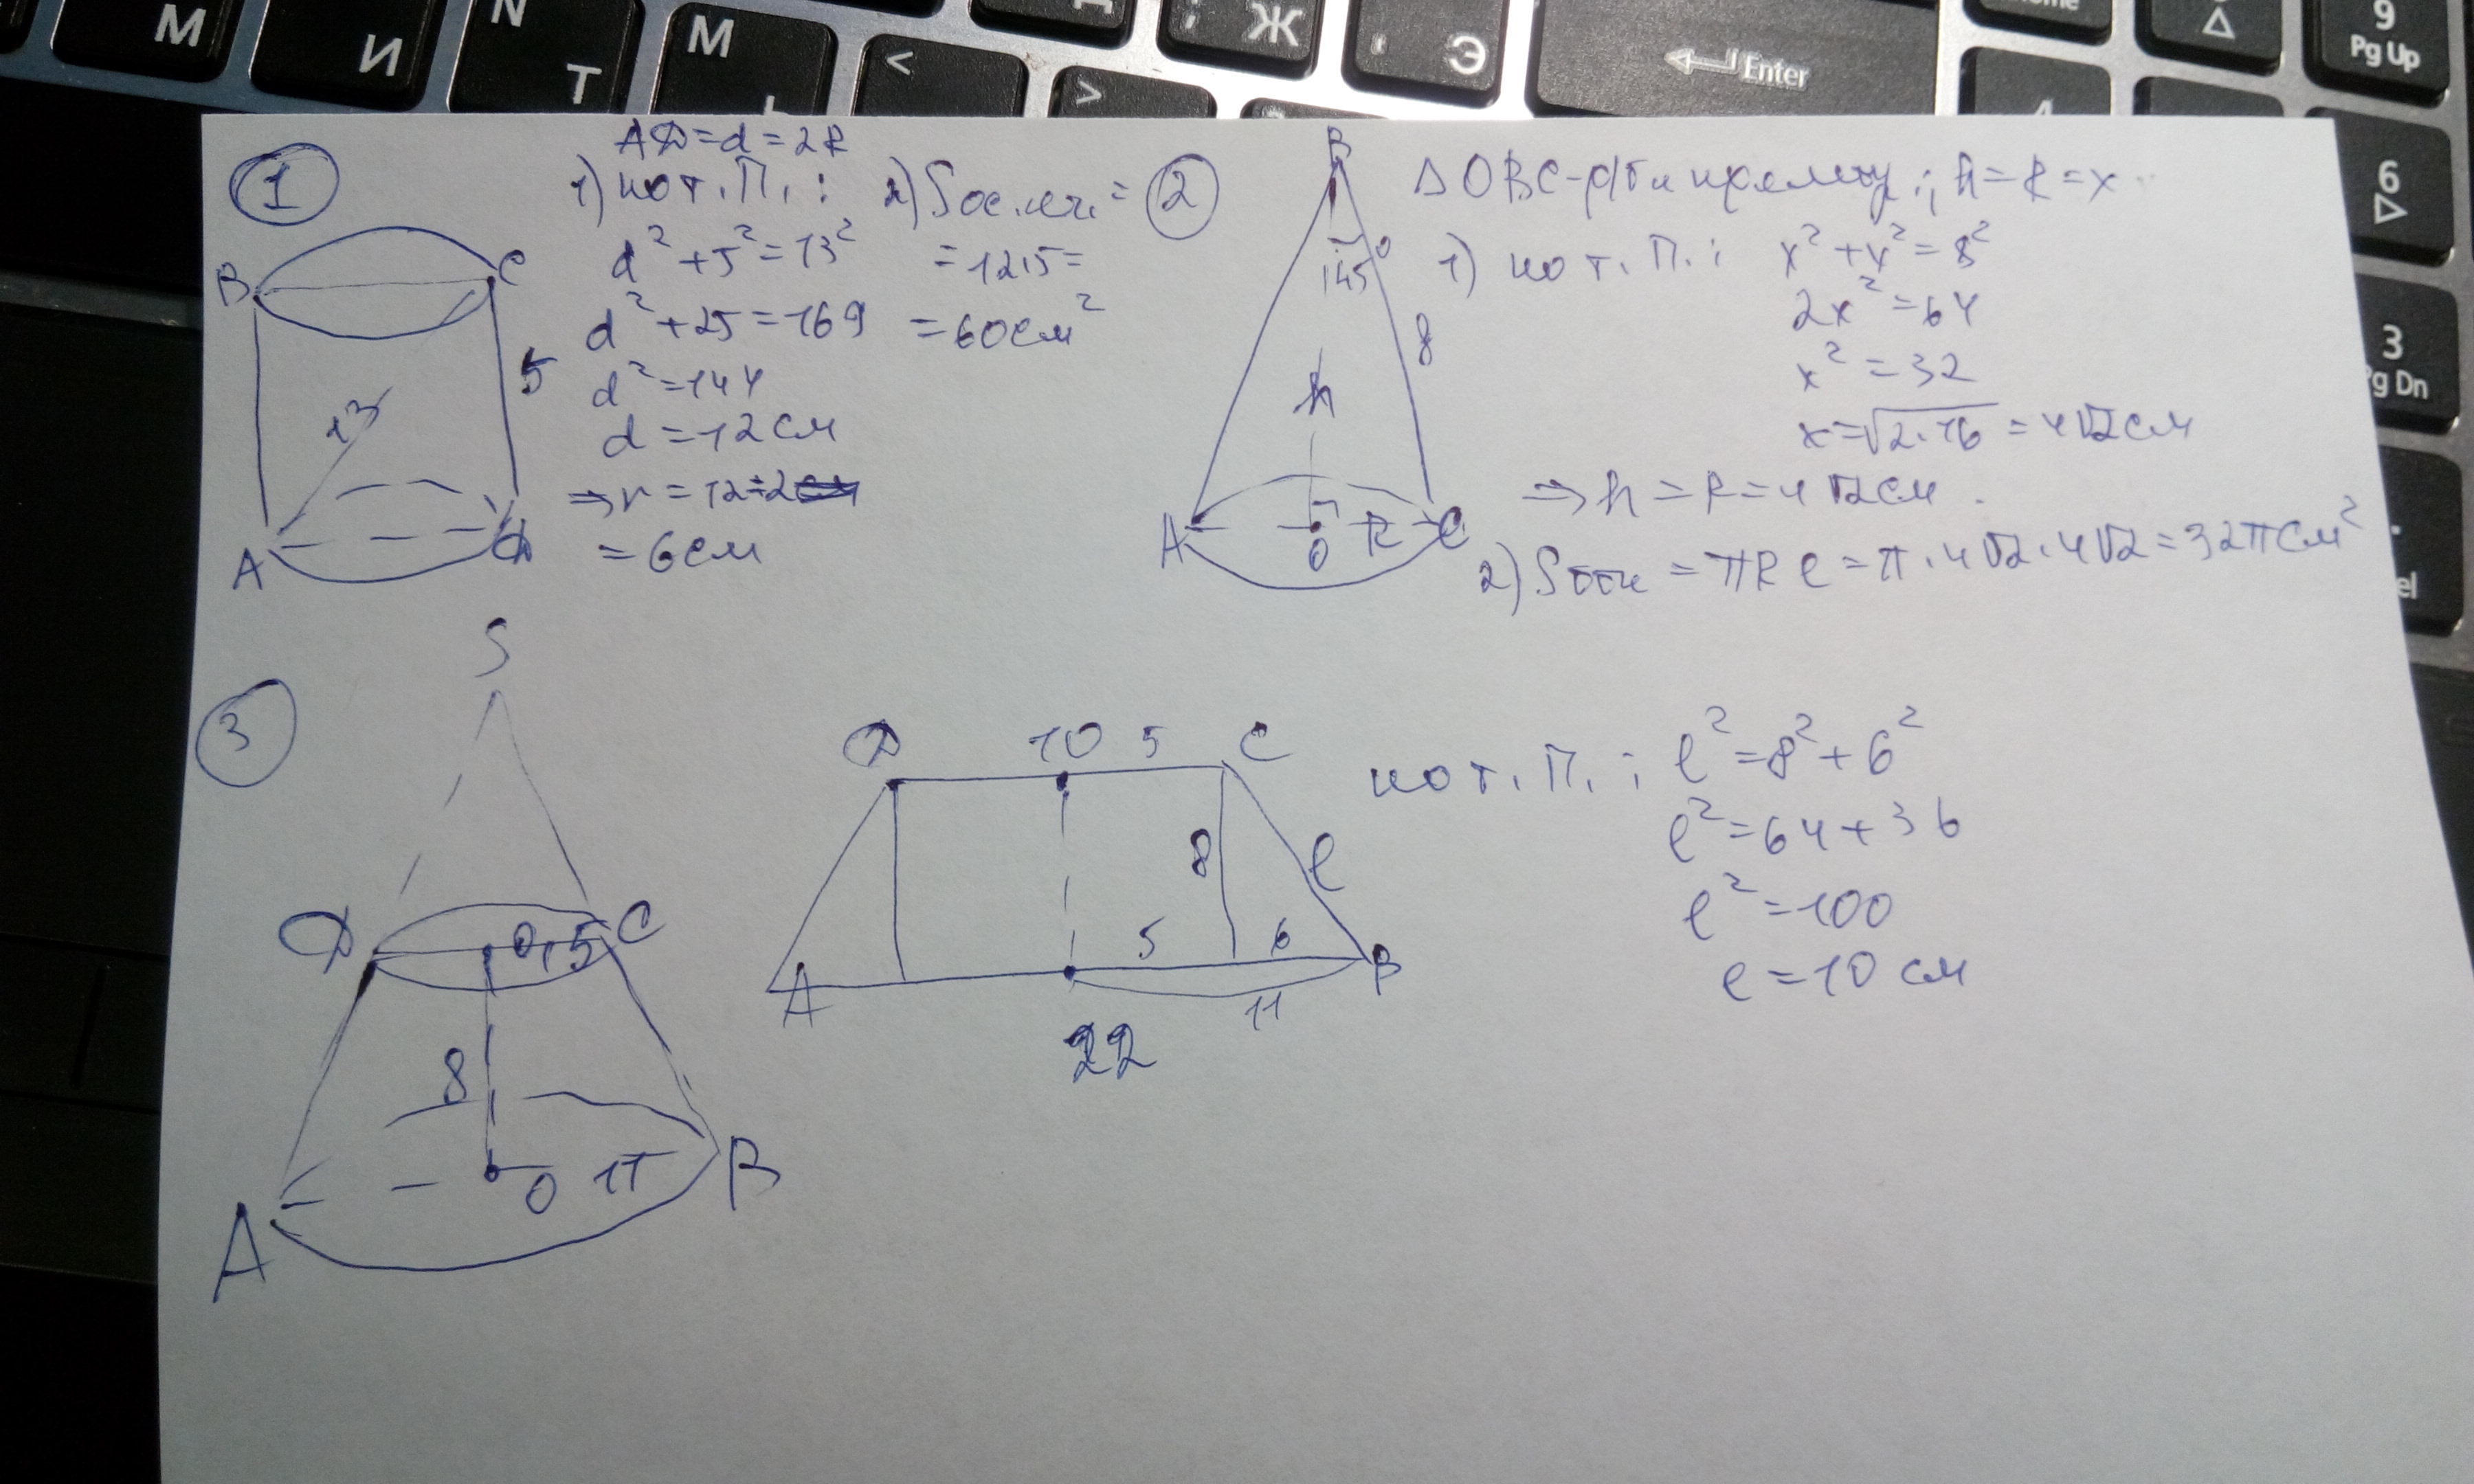 М
И
N
Т
М
Ь
<
>
Ж
;
Э
Enter
9
Pg Up
6
3
Pg Dn
4
1
AD=d=2R
1) по т. П. :
d²+5²=13²
d²+25=169
d²=144
d=12см
⇒r=12÷2
=6см
2) Sос.сеч. =
=12·5=
=60см²
B
C
5
13
A
D
2
B
45°
8
h
A
O
R
C
Δ OBC-р/б и прямоуг ; h=R=x
1) по т. П. : x²+x²=8²
2x²=64
x²=32
x=√2·16=4√2см
⇒h=R=4√2см.
2) Sбок =πRl=π·4√2·4√2=32πсм²
3
S
D
O₁
5
C
8
A
O
11
B
D
10
5
C
8
l
5
6
A
B
11
22
по т. П. : l²=8²+6²
l²=64+36
l²=100
l=10 см